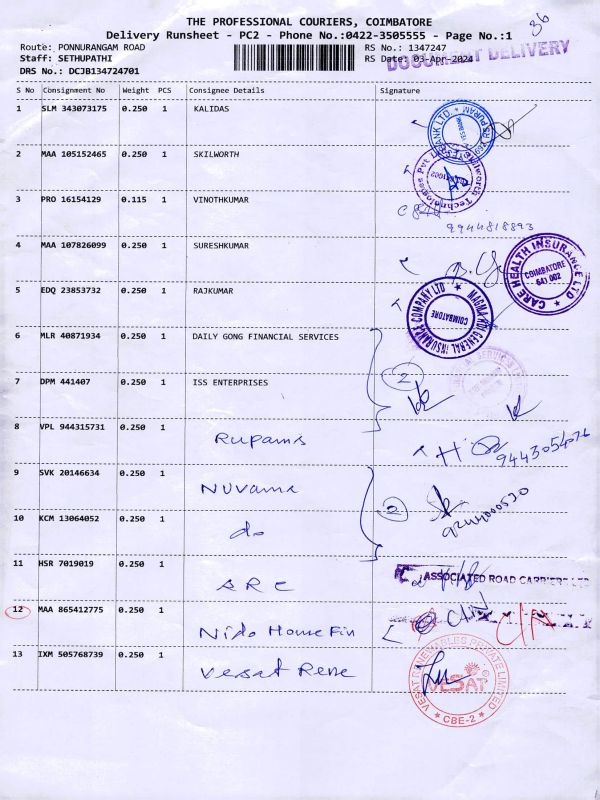 36
THE PROFESSIONAL COURIERS, COIMBATORE
Delivery Runsheet - PC2 - Phone No.:0422-3505555 - Page No.:1
Route: PONNURANGAM ROAD RS No.: 1347247
Staff: SETHUPATHI RS Date: 03-Apr-2024
DOCUMENT DELIVERY
DRS No.: DCJB134724701
S No Consignment No Weight PCS Consignee Details Signature
1 SLM 343073175 0.250 1 KALIDAS
2 MAA 105152465 0.250 1 SKILWORTH
3 PRO 16154129 0.115 1 VINOTHKUMAR
9944818893
4 MAA 107826099 0.250 1 SURESHKUMAR
CARE HEALTH INSURANCE LTD
COIMBATORE
641 002
5 EDQ 23853732 0.250 1 RAJKUMAR
MAGMA HDI GENERAL INSURANCE COMPANY LTD
COIMBATORE
6 MLR 40871934 0.250 1 DAILY GONG FINANCIAL SERVICES
7 DPM 441407 0.250 1 ISS ENTERPRISES
2
8 VPL 944315731 0.250 1 Rupams
9 SVK 20146634 0.250 1 Nuvama
2
10 KCM 13064052 0.250 1 do
11 HSR 7019019 0.250 1 ARC
ASSOCIATED ROAD CARRIERS LTD
12 MAA 865412775 0.250 1 Nido Home Fin
13 IXM 505768739 0.250 1 Vesat Rene
VESAT RENEWABLES PRIVATE LIMITED
VESAT
CBE-2